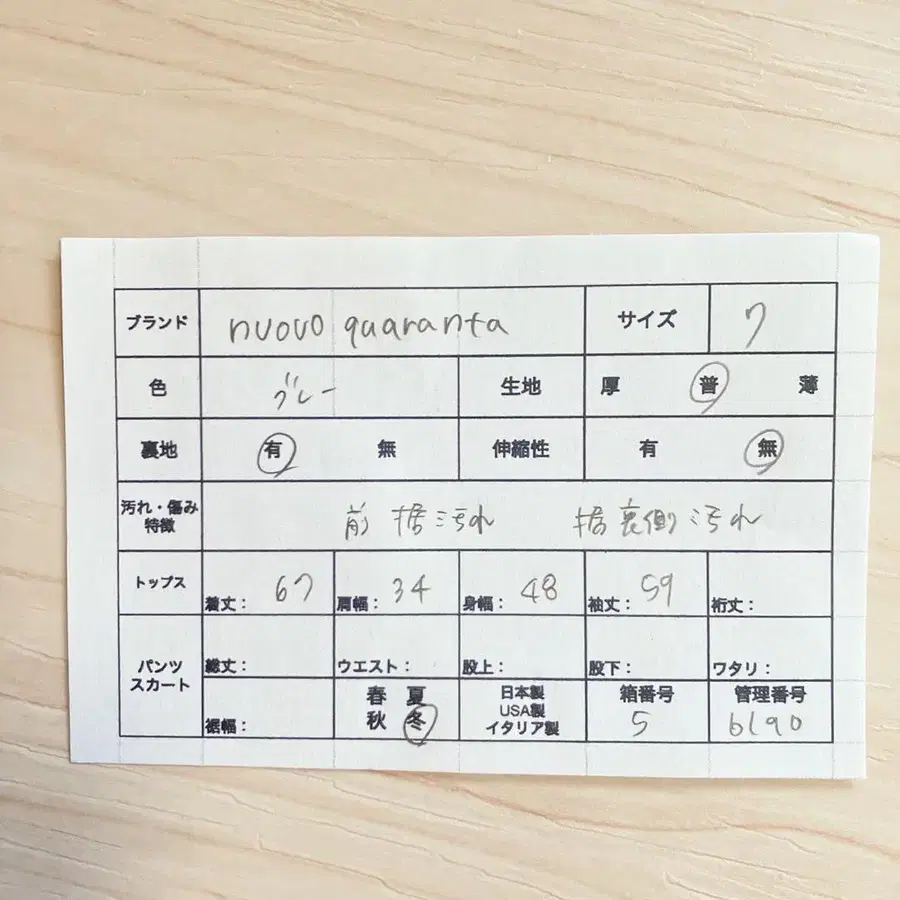 ブランド nuovo quaranta サイズ 7
色 グレー 生地 厚 普 薄
裏地 有 無 伸縮性 有 無
汚れ・傷み
特徴 前裾汚れ 裾裏側汚れ
トップス 着丈: 67 肩幅: 34 身幅: 48 袖丈: 59 裄丈:
パンツ
スカート
総丈: ウエスト: 股上: 股下: ワタリ:
裾幅:
春 夏
秋 冬
日本製
USA製
イタリア製
箱番号
5
管理番号
6190